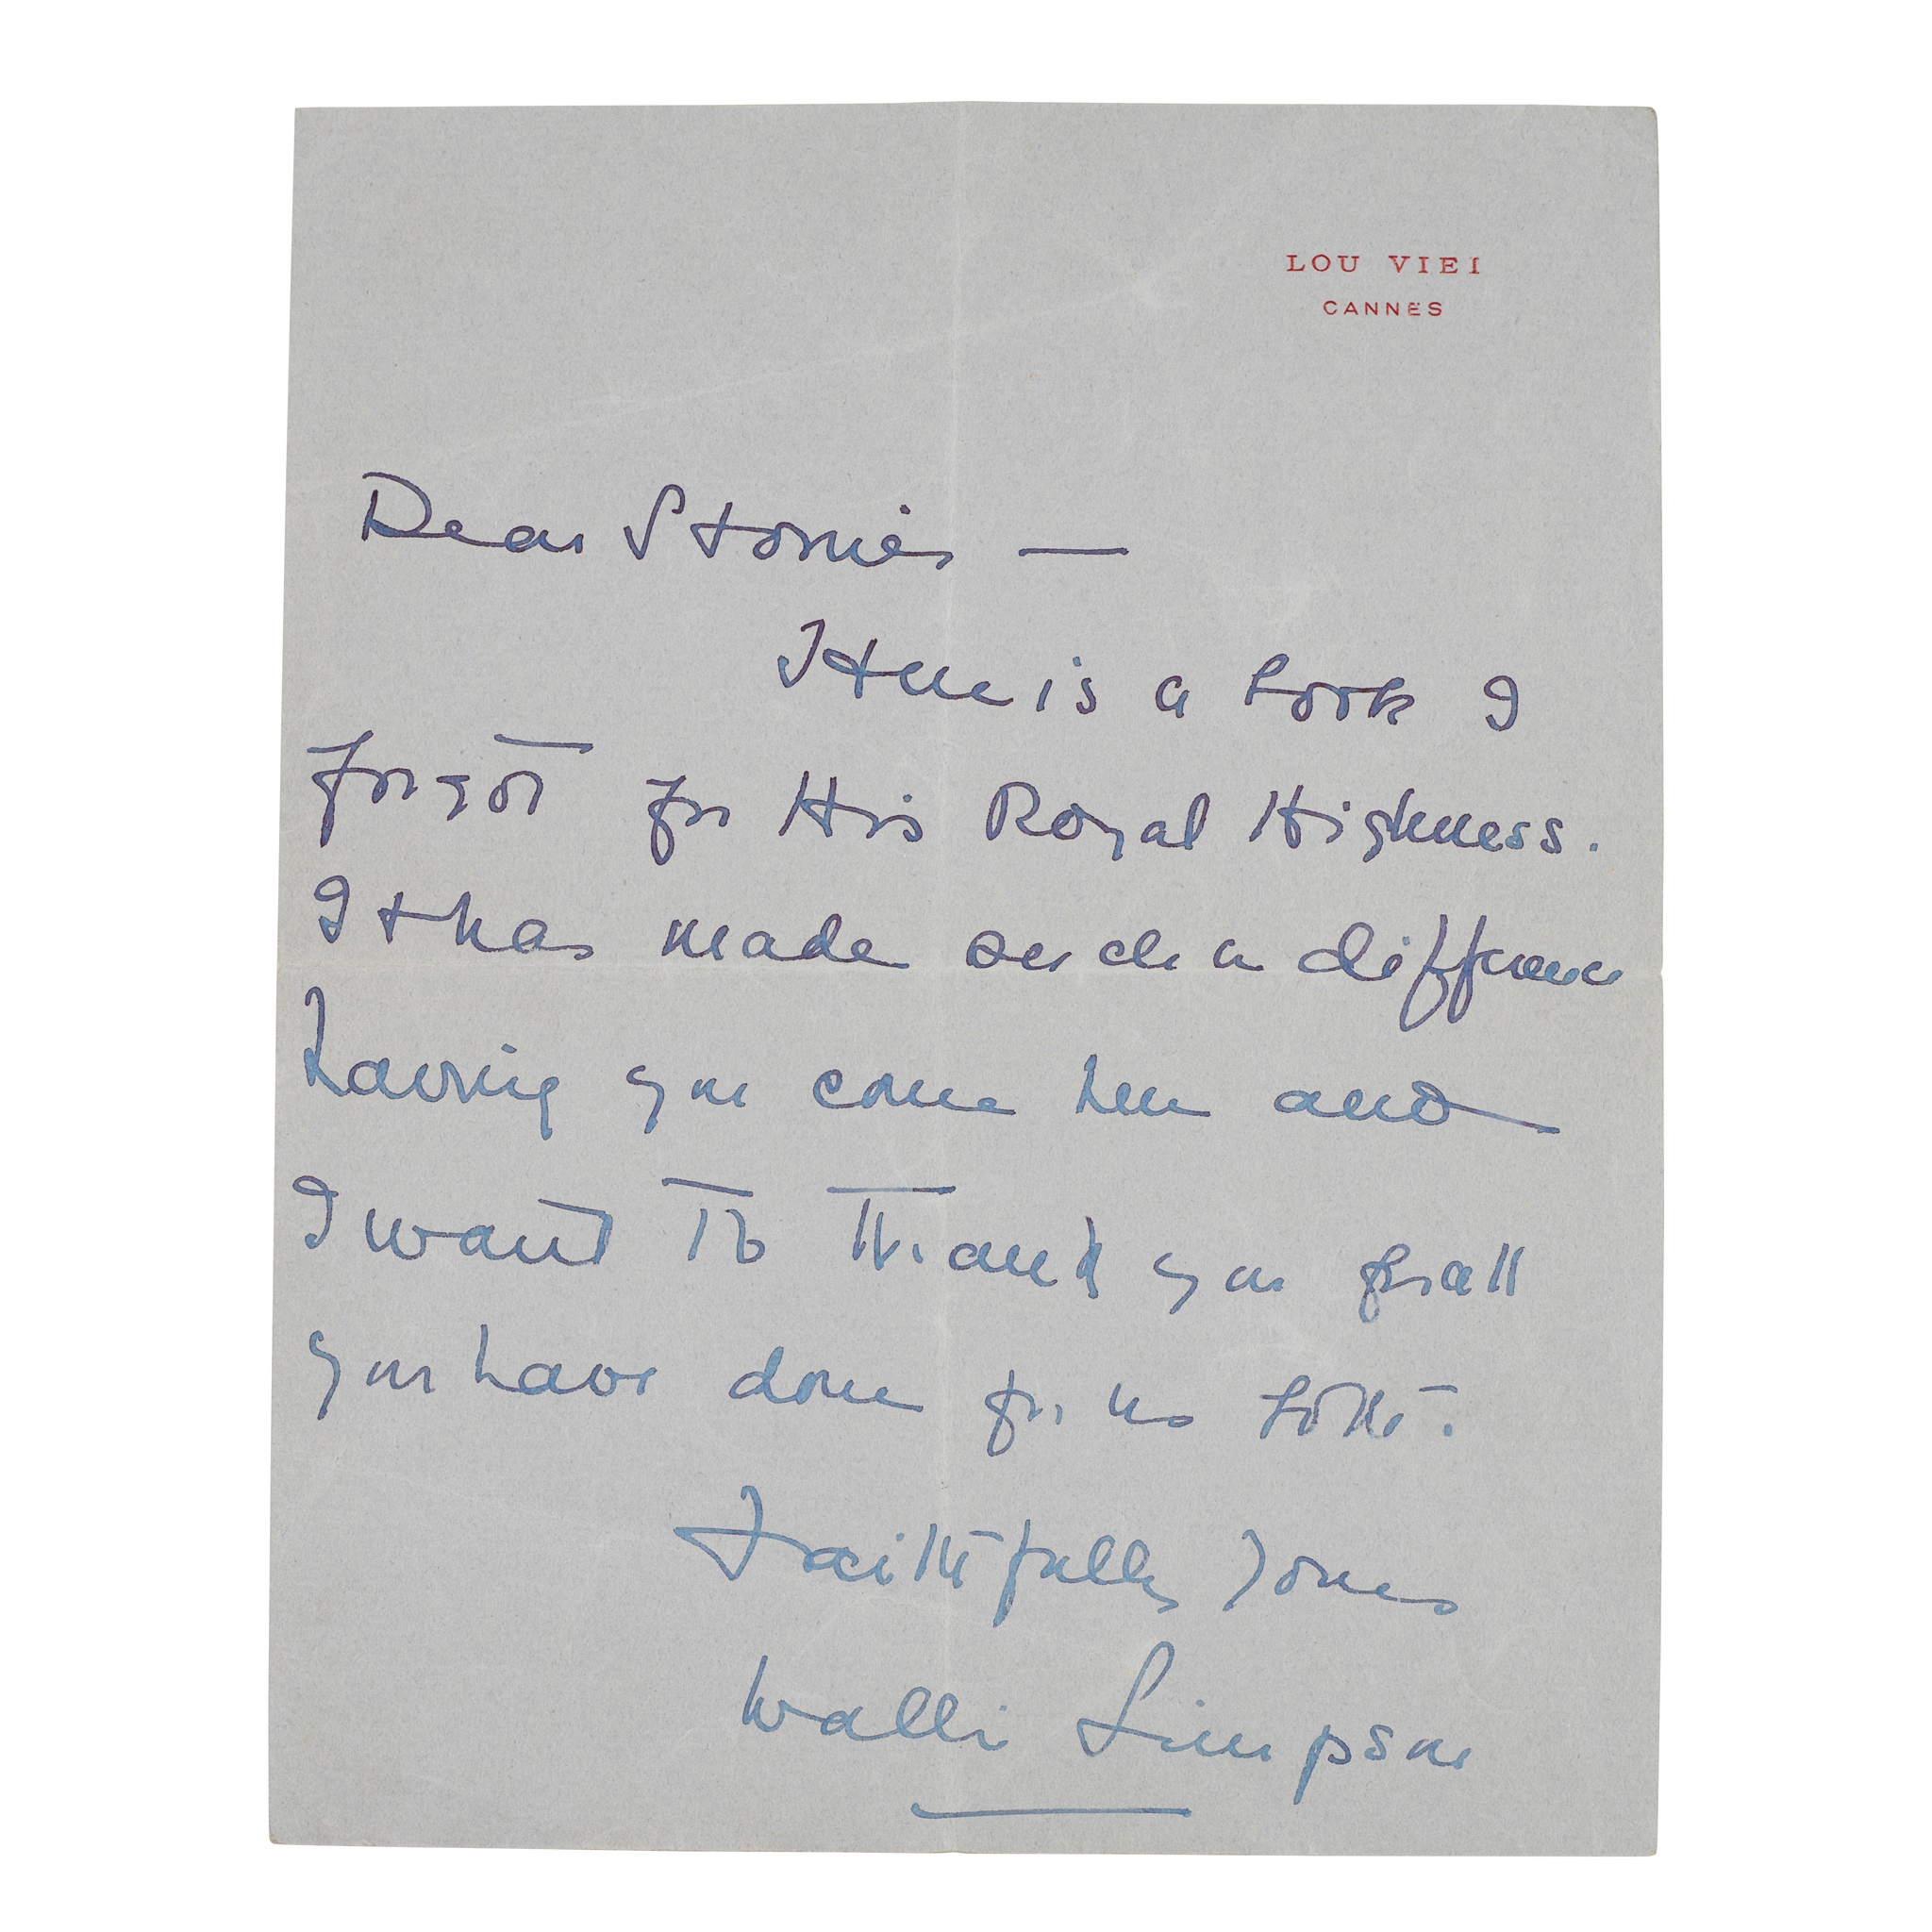 LOU VIEI
CANNES
Dear Storrier —
Here is a book I
forgot for His Royal Highness.
It has made such a difference
having you come here and
I want to thank you for all
you have done for us both.
Faithfully yours
Wallis Simpson